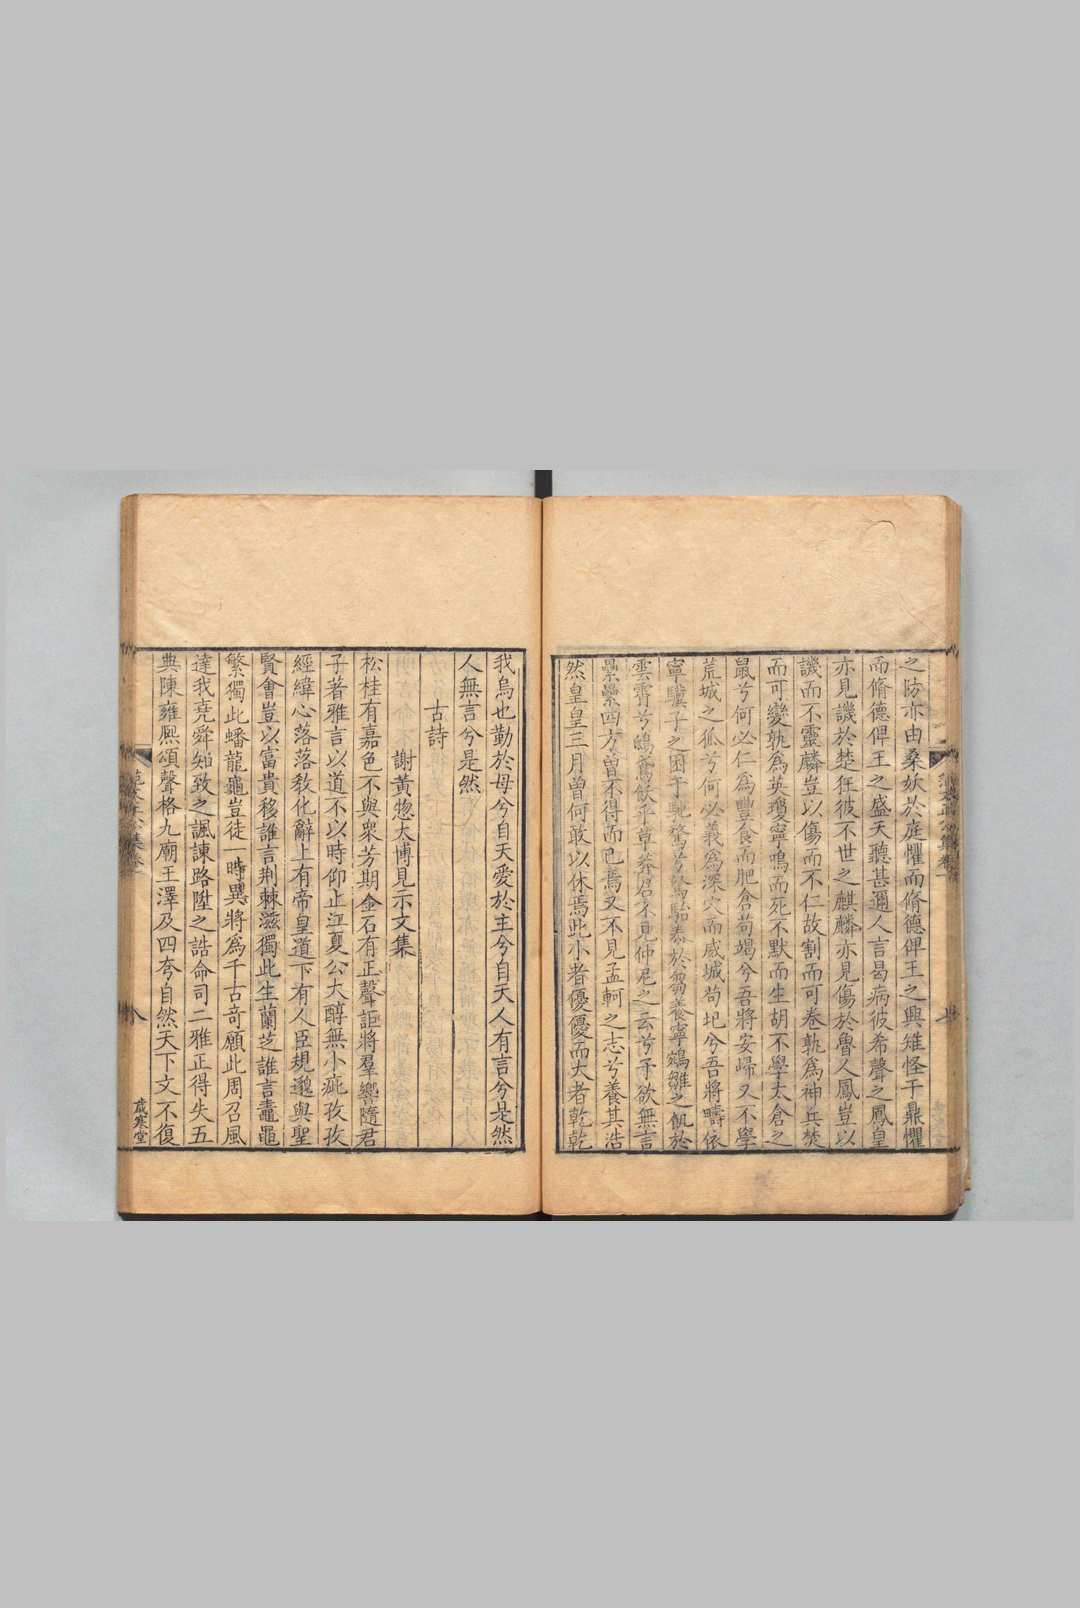 之防亦由桑妖於庭懼而脩德俾王之興雉怪于鼎懼
而脩德俾王之盛天聽甚邇人言曷病彼希聲之鳳皇
亦見譏於楚狂彼不世之麒麟亦見傷於魯人鳳豈以
譏而不靈麟豈以傷而不仁故割而可卷孰為神兵焚
而可變孰為英瓊寧鳴而死不默而生胡不學太倉之
鼠兮何必仁為豐食而肥倉苟竭兮吾將安歸又不學
荒城之狐兮何必義為深穴而威城苟圮兮吾將疇依
寧驥子之困于馳騖兮駑駘泰於芻養寧鵷雛之飢於
雲霄兮鴟鳶飫乎草莽君不見仲尼之云兮予欲無言
纍纍四方曾不得而已焉又不見孟軻之志兮養其浩
然皇皇三月曾何敢以休焉此小者優優而大者乾乾
我烏也勤於母兮自天愛於主兮自天人有言兮是然
人無言兮是然
古詩
謝黃惣太博見示文集
松桂有嘉色不與衆芳期金石有正聲詎將羣響隨君
子著雅言以道不以時仰止江夏公大醇無小疵孜孜
經緯心落落敎化辭上有帝皇道下有人臣規邈與聖
賢會豈以富貴移誰言荆棘滋獨此生蘭芝誰言䵷黽
繁獨此蟠龍龜豈徒一時異將為千古竒願此周召風
達我堯舜知致之諷諫路陞之誥命司二雅正得失五
典陳雍熙頌聲格九廟王澤及四夸自然天下文不復
八
歲寒堂